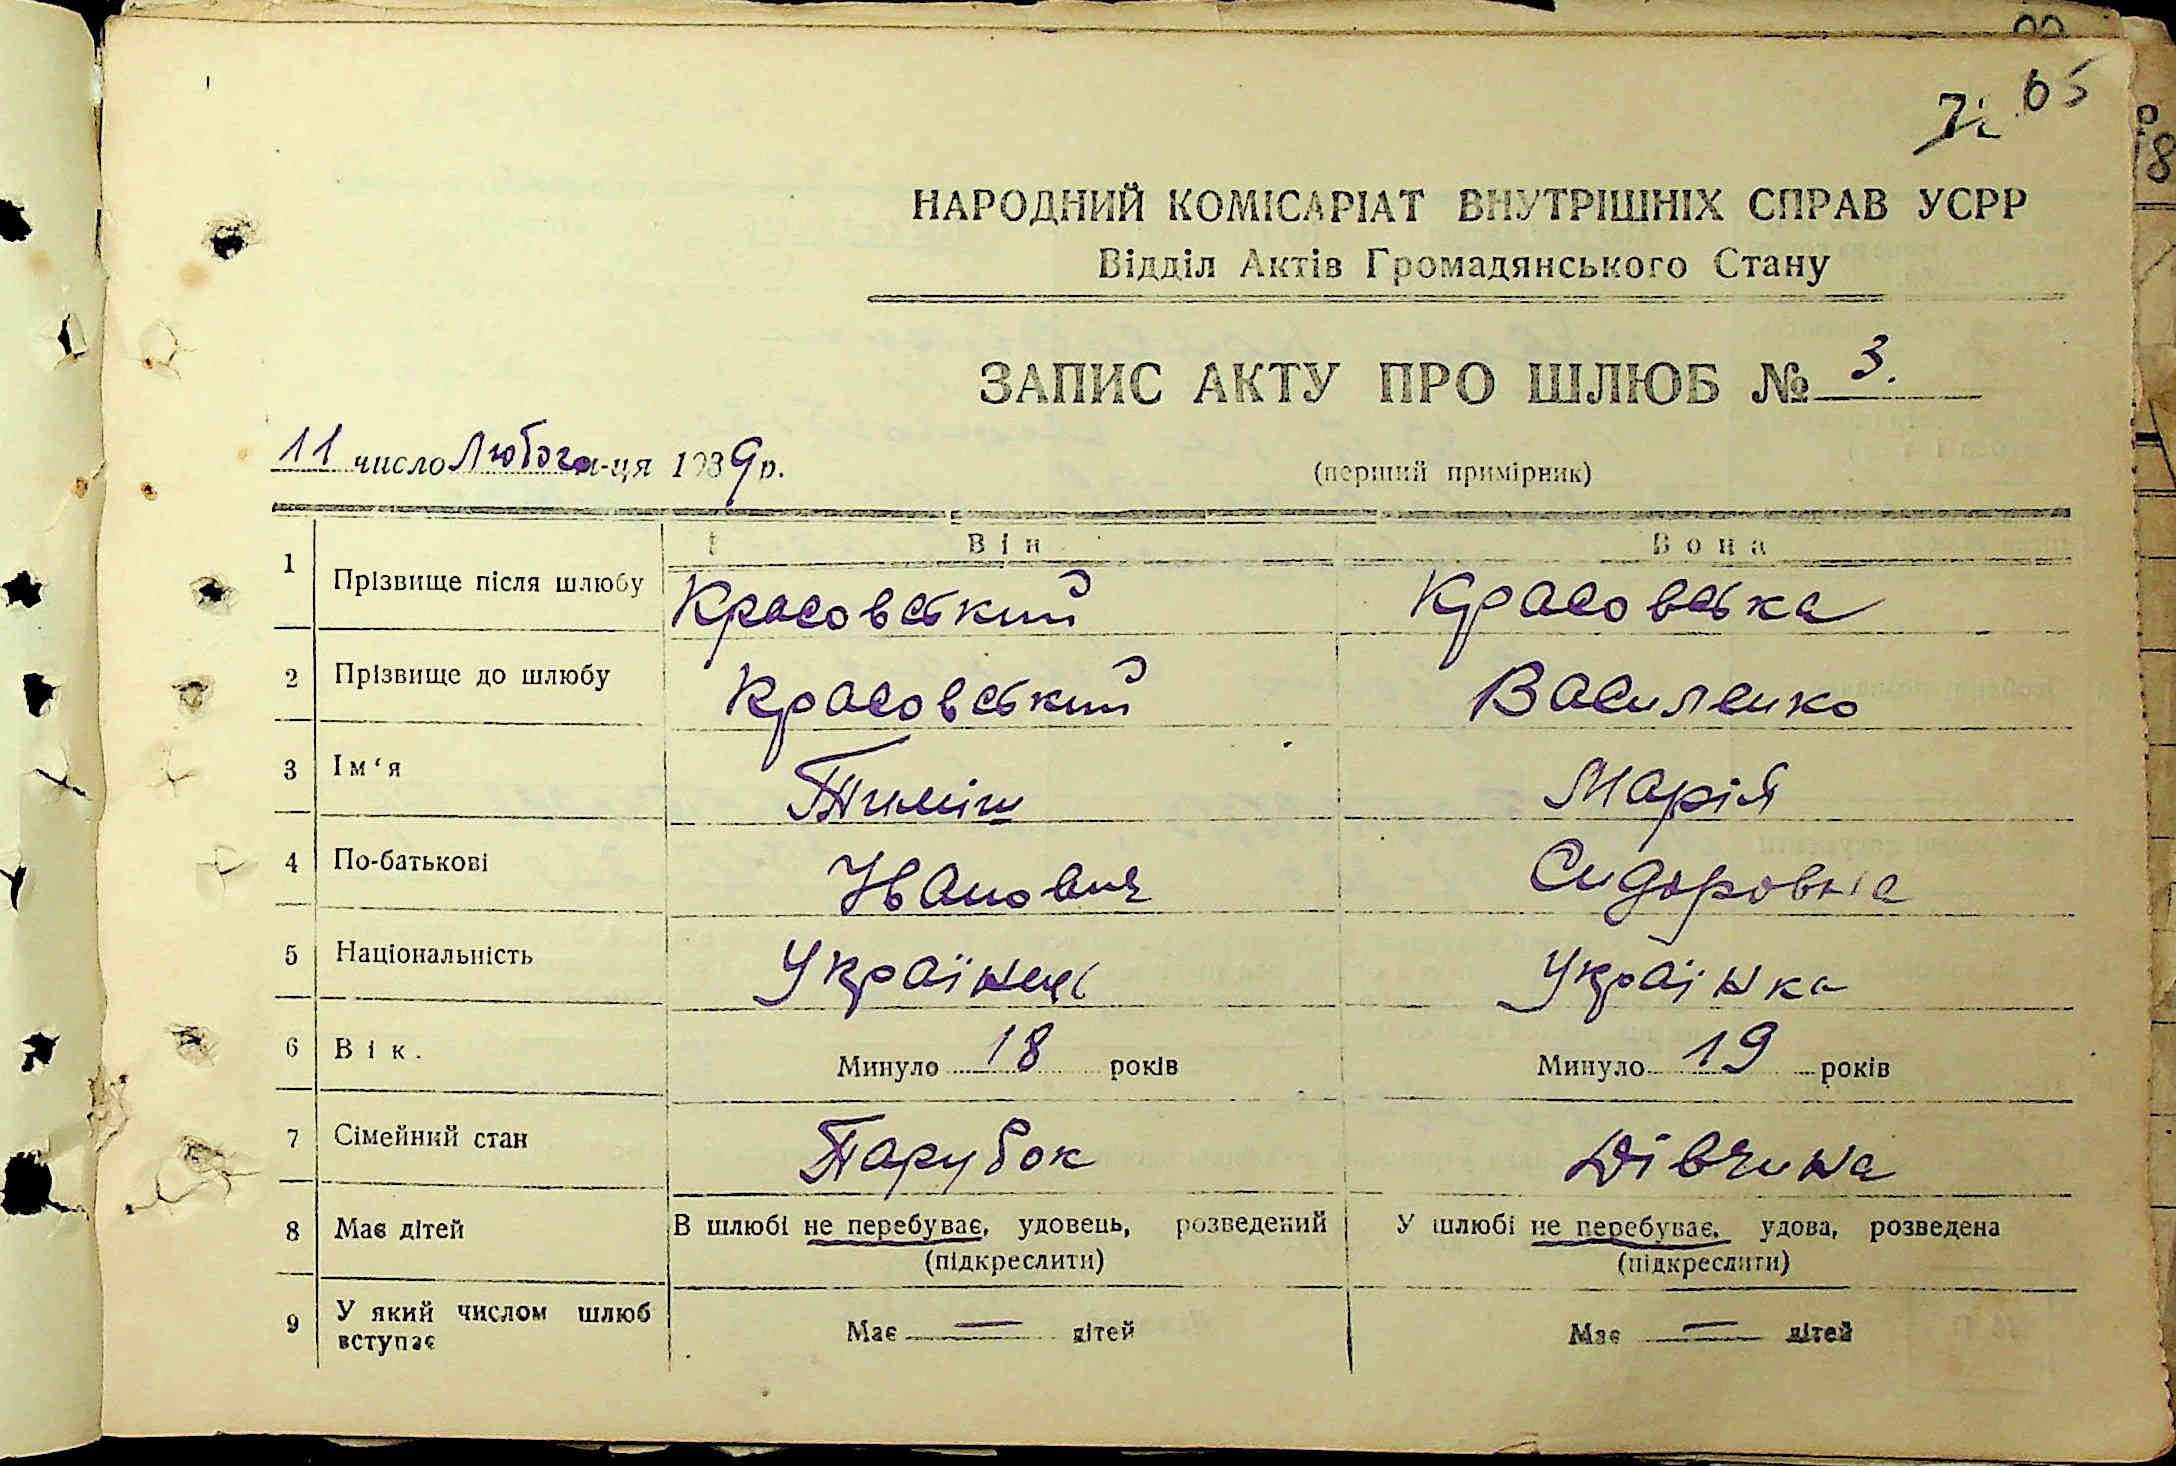 65
НАРОДНИЙ КОМІСАРІАТ ВНУТРІШНІХ СПРАВ УСРР
Відділ Актів Громадянського Стану
ЗАПИС АКТУ ПРО ШЛЮБ № 3.
11 число Лютого м-ця 1939 р.
(перший примірник)
Він Вона
1 Прізвище після шлюбу Красовський Красовська
2 Прізвище до шлюбу Красовський Василенко
3 Ім‘я Тиміш Марія
4 По-батькові Іванович Сидоровна
5 Національність Українець Українка
6 Вік. Минуло 18 років Минуло 19 років
7 Сімейний стан Парубок Дівчина
8 Має дітей В шлюбі не перебуває, удовець, розведений У шлюбі не перебуває, удова, розведена
(підкреслити) (підкреслити)
9 У який числом шлюб вступає Має — дітей Має — дітей